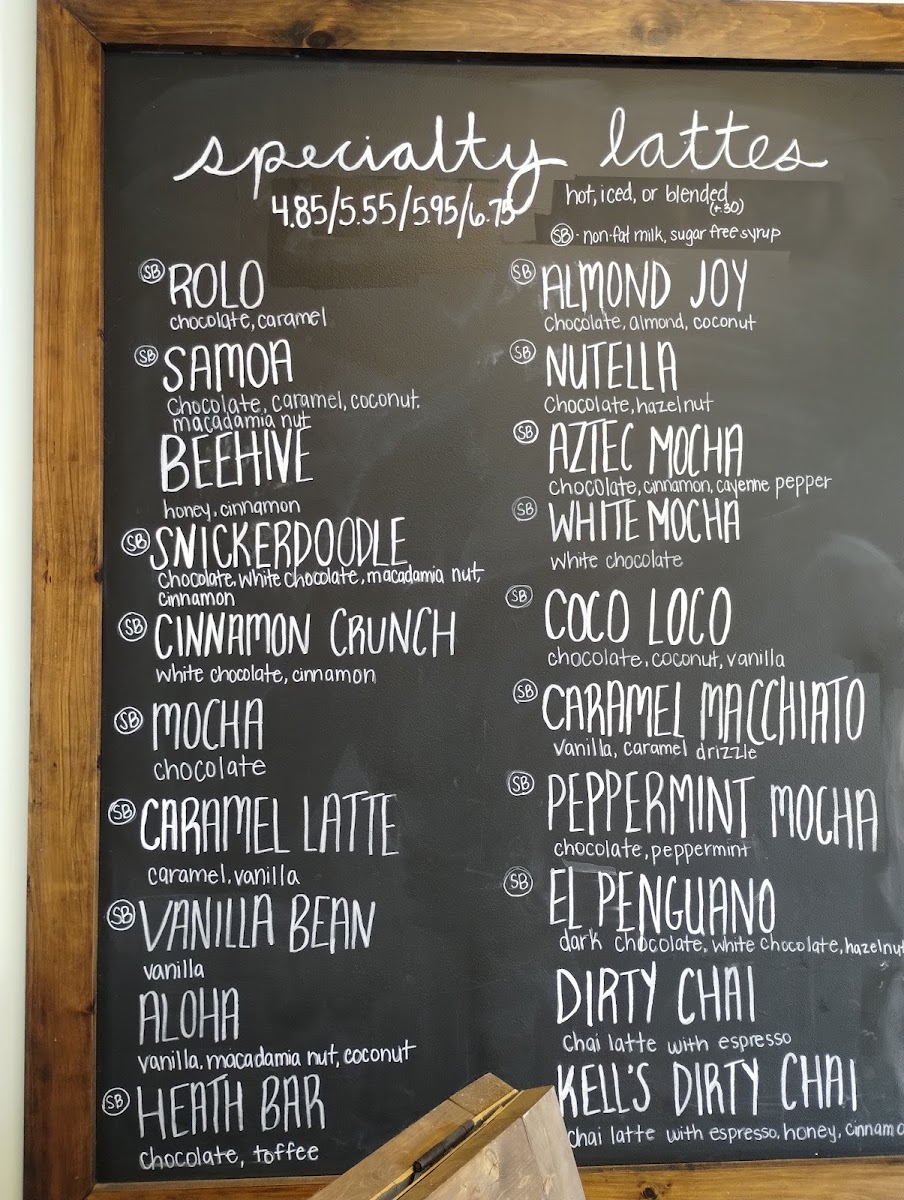 specialty lattes
4.85/5.55/5.95/6.75
hot, iced, or blended
(+.30)
SB - non-fat milk, sugar free syrup
SB ROLO
chocolate, caramel
SB SAMOA
chocolate, caramel, coconut,
macadamia nut
BEEHIVE
honey, cinnamon
SB SNICKERDOODLE
chocolate, white chocolate, macadamia nut,
cinnamon
SB CINNAMON CRUNCH
white chocolate, cinnamon
SB MOCHA
chocolate
SB CARAMEL LATTE
caramel, vanilla
SB VANILLA BEAN
vanilla
ALOHA
vanilla, macadamia nut, coconut
SB HEATH BAR
chocolate, toffee
SB ALMOND JOY
chocolate, almond, coconut
SB NUTELLA
chocolate, hazelnut
SB AZTEC MOCHA
chocolate, cinnamon, cayenne pepper
SB WHITE MOCHA
white chocolate
SB COCO LOCO
chocolate, coconut, vanilla
SB CARAMEL MACCHIATO
vanilla, caramel drizzle
SB PEPPERMINT MOCHA
chocolate, peppermint
SB EL PENGUANO
dark chocolate, white chocolate, hazelnut
DIRTY CHAI
chai latte with espresso
KELL'S DIRTY CHAI
chai latte with espresso, honey, cinnamo